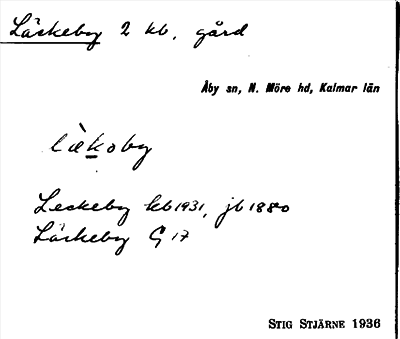 Läskeby 2 kb, gård
Åby sn, N. Möre hd, Kalmar län
lækoby
Leckeby kb 1931, jb 1880
Läckeby G 17
STIG STJÄRNE 1936